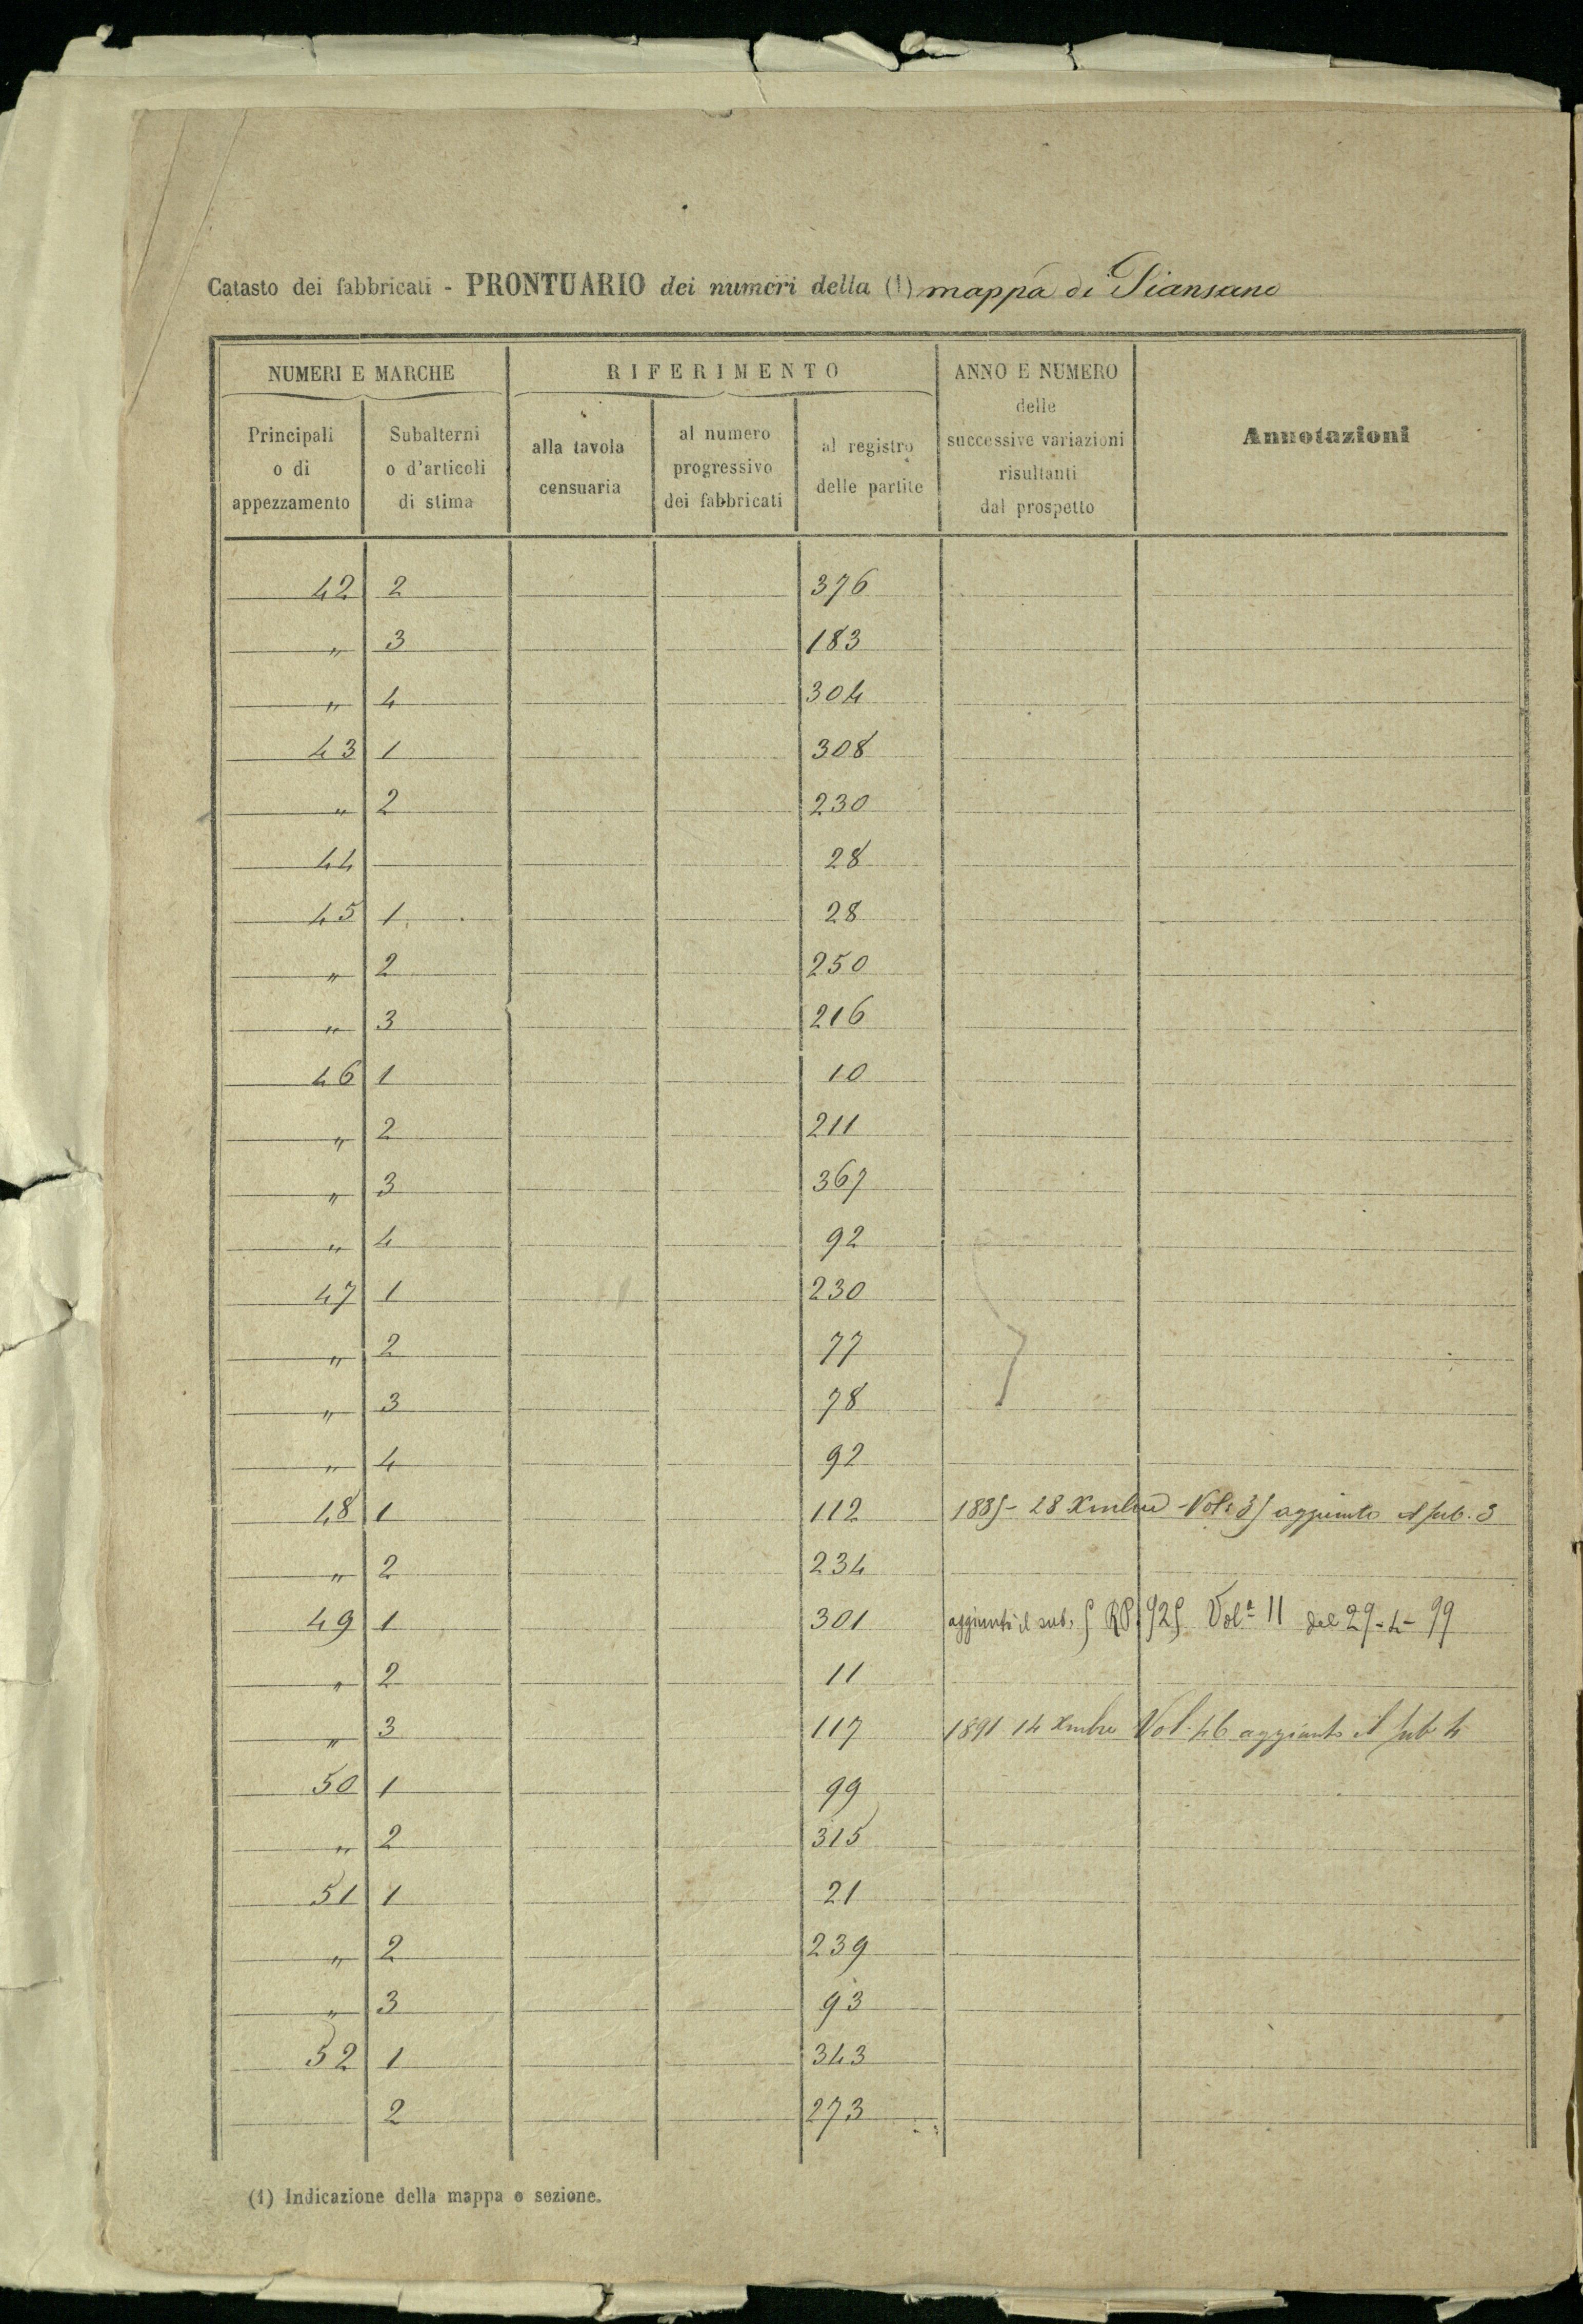 Catasto dei fabbricati - PRONTUARIO dei numeri della (1) mappa di Piansano
NUMERI E MARCHE RIFERIMENTO ANNO E NUMERO delle successive variazioni risultanti dal prospetto Annotazioni
Principali o di appezzamento Subalterni o d'articoli di stima alla tavola censuaria al numero progressivo dei fabbricati al registro delle partite
42 2 376
" 3 183
" 4 304
43 1 308
" 2 230
44 28
45 1 28
" 2 250
" 3 216
46 1 10
" 2 211
" 3 367
" 4 92
47 1 230
" 2 77
" 3 78
" 4 92
48 1 112 28 Xmbre Vol: aggiunto il sub. 3
" 2 234
49 1 301 aggiunto il sub. Vol. 11 del
" 2 11
" 3 117 1891 14 Xmbre Vol. 46 aggiunto il sub 4
50 1 99
" 2 315
51 1 21
" 2 239
" 3 93
52 1 343
2 273
(1) Indicazione della mappa o sezione.